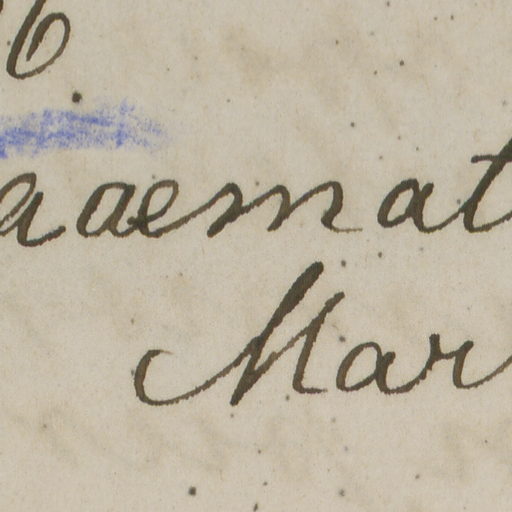 6
a aemat
Mar